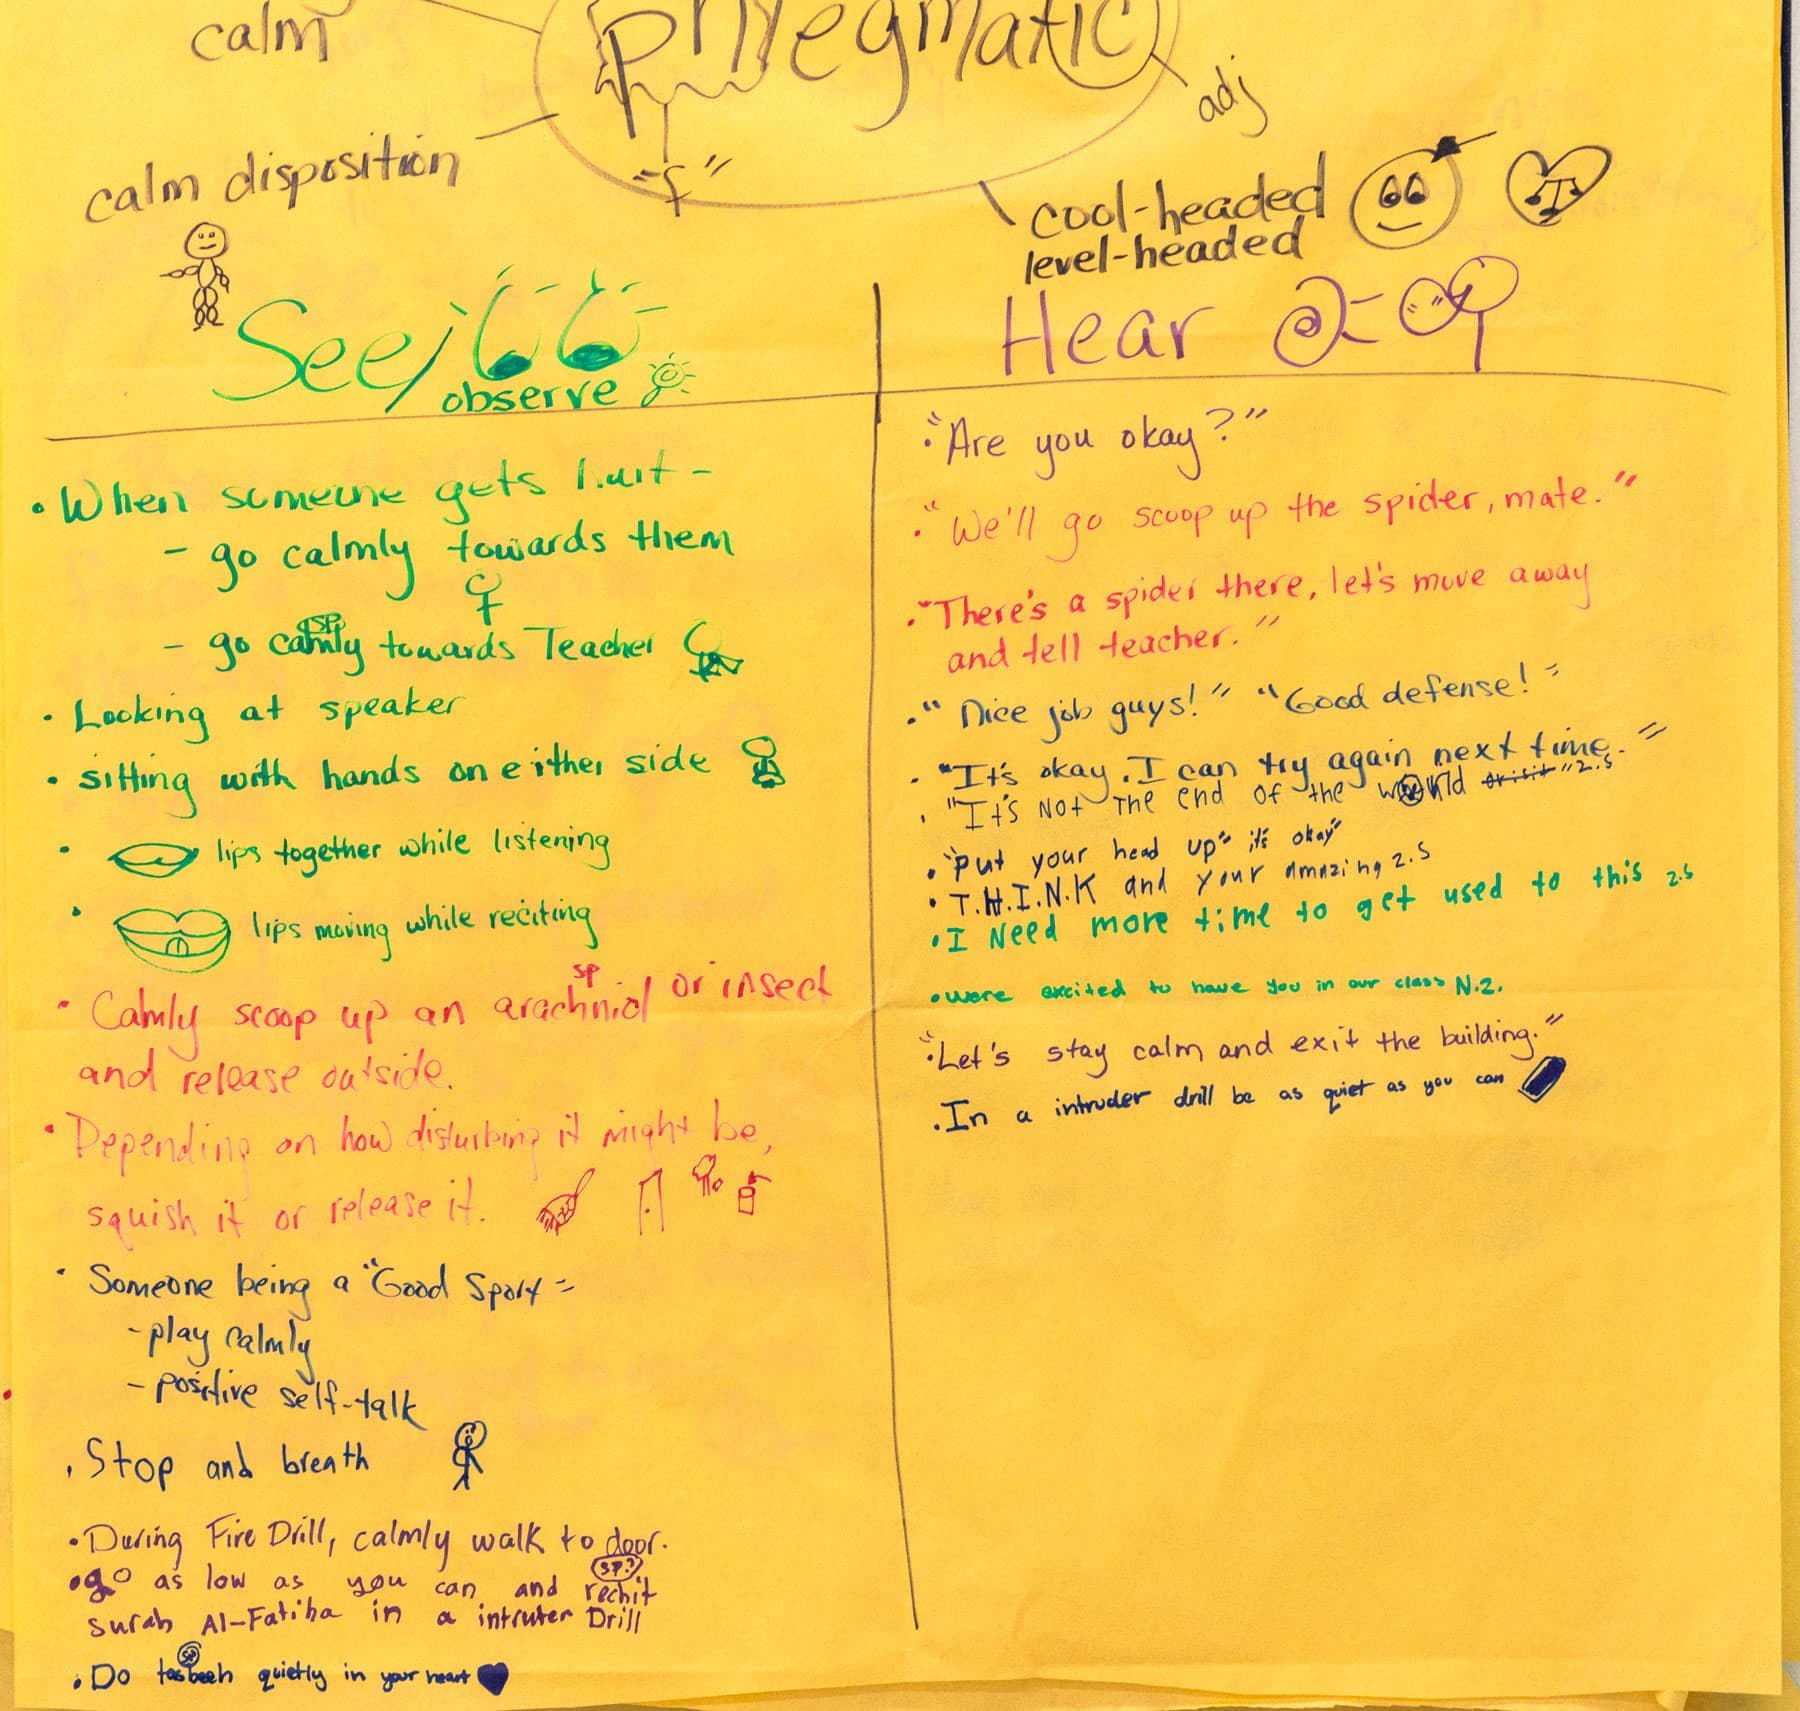 calm
Phlegmatic
adj
"f"
calm disposition
cool-headed
level-headed
See/
observe
Hear
• When someone gets hurt -
- go calmly towards them
sp
- go calmly towards Teacher
• Looking at speaker
• sitting with hands on either side
• lips together while listening
• lips moving while reciting
sp
• Calmly scoop up an arachnid or insect
and release outside.
• Depending on how disturbing it might be,
squish it or release it.
• Someone being a "Good Sport"
- play calmly
- positive self-talk
• Stop and breath
• During Fire Drill, calmly walk to door.
sp?
• go as low as you can and rechit
surah Al-Fatiha in a intruter Drill
sp
• Do quietly in your heart
• "Are you okay?"
• "We'll go scoop up the spider, mate."
• "There's a spider there, let's move away
and tell teacher."
• "Nice job guys!" "Good defense!"
• "It's okay. I can try again next time."
• "It's Not The end of the world "2.S
• "Put your head up" it's okay"
• T.H.I.N.K and your amazing 2.S
• I Need more time to get used to this 2.S
• were excited to have you in our class N.Z.
• "Let's stay calm and exit the building."
• In a intruder drill be as quiet as you can